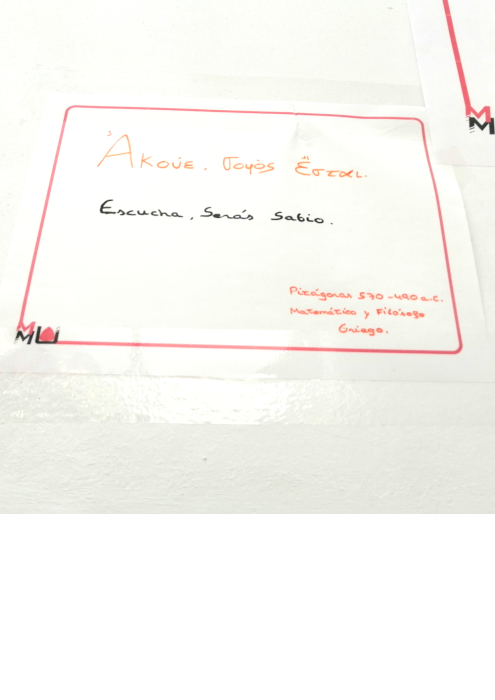 Ἄκουε. σοφὸς ἔσται.
Escucha, Serás Sabio.
Pitágoras 570-490 a.C.
Matemático y Filósofo
Griego.